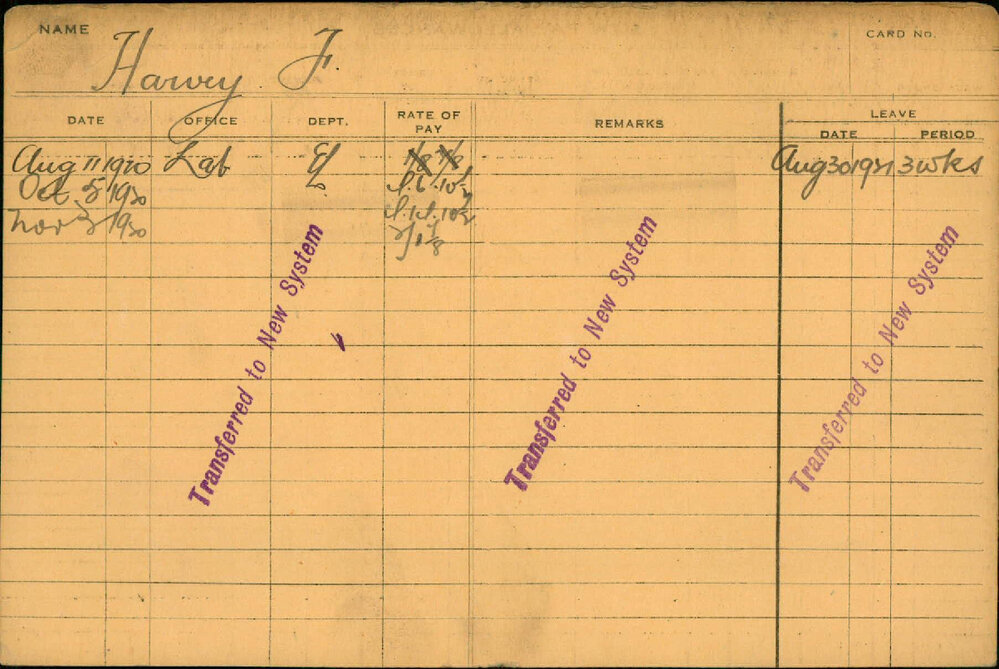 NAME
Harvey F.
CARD No.
DATE OFFICE DEPT. RATE OF PAY REMARKS LEAVE
DATE PERIOD
Aug 11 1920 Lab El Aug 30 1921 3 wks
Oct 5 1920
Nov 3 1920
Transferred to New System
Transferred to New System
Transferred to New System